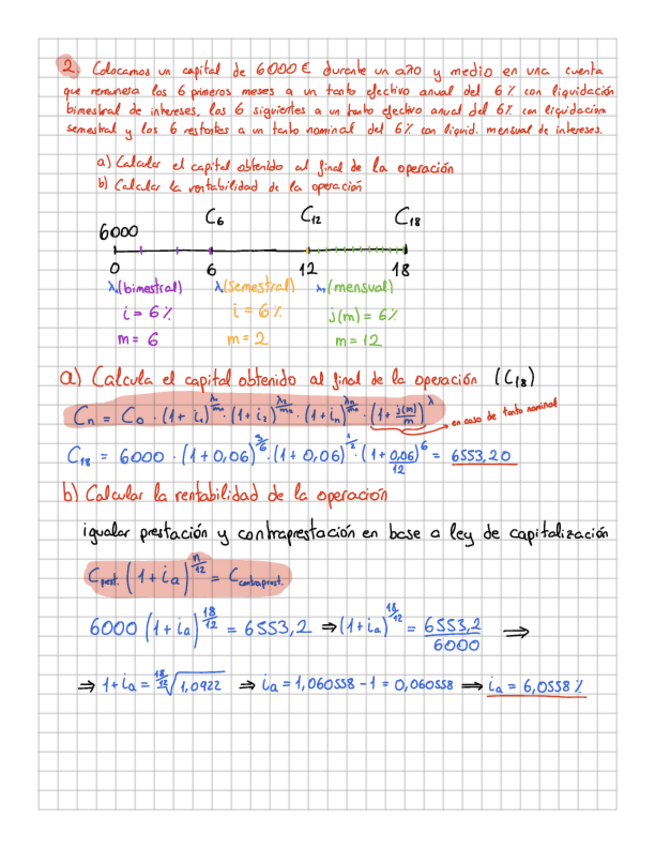 2. Colocamos un capital de 6000 € durante un año y medio en una cuenta
que remunera los 6 primeros meses a un tanto efectivo anual del 6 % con liquidación
bimestral de intereses, los 6 siguientes a un tanto efectivo anual del 6% con liquidación
semestral y los 6 restantes a un tanto nominal del 6% con liquid. mensual de intereses.
a) Calcular el capital obtenido al final de la operación
b) Calcular la rentabilidad de la operación
6000 C₆ C₁₂ C₁₈
0 6 12 18
λ₁(bimestral) λ₂(semestral) λ₃(mensual)
i = 6 % i = 6 % j(m) = 6%
m = 6 m = 2 m = 12
a) Calcula el capital obtenido al final de la operación (C₁₈)
Cₙ = C₀ · (1 + i₁)^(λ₁/m₁) · (1 + i₂)^(λ₂/m₂) · (1 + iₙ)^(λₙ/mₙ) · (1 + j(m)/m)^λ → en caso de tanto nominal
C₁₈ = 6000 · (1 + 0,06)^(3/6) · (1 + 0,06)^(1/2) · (1 + 0,06/12)^6 = 6553,20
b) Calcular la rentabilidad de la operación
igualar prestación y contraprestación en base a ley de capitalización
C prest. (1 + iₐ)^(n/12) = C contraprest.
6000 (1 + iₐ)^(18/12) = 6553,2 ⇒ (1 + iₐ)^(18/12) = 6553,2/6000 ⇒
⇒ 1 + iₐ = ^(18/12)√1,0922 ⇒ iₐ = 1,060558 - 1 = 0,060558 ⇒ iₐ = 6,0558 %